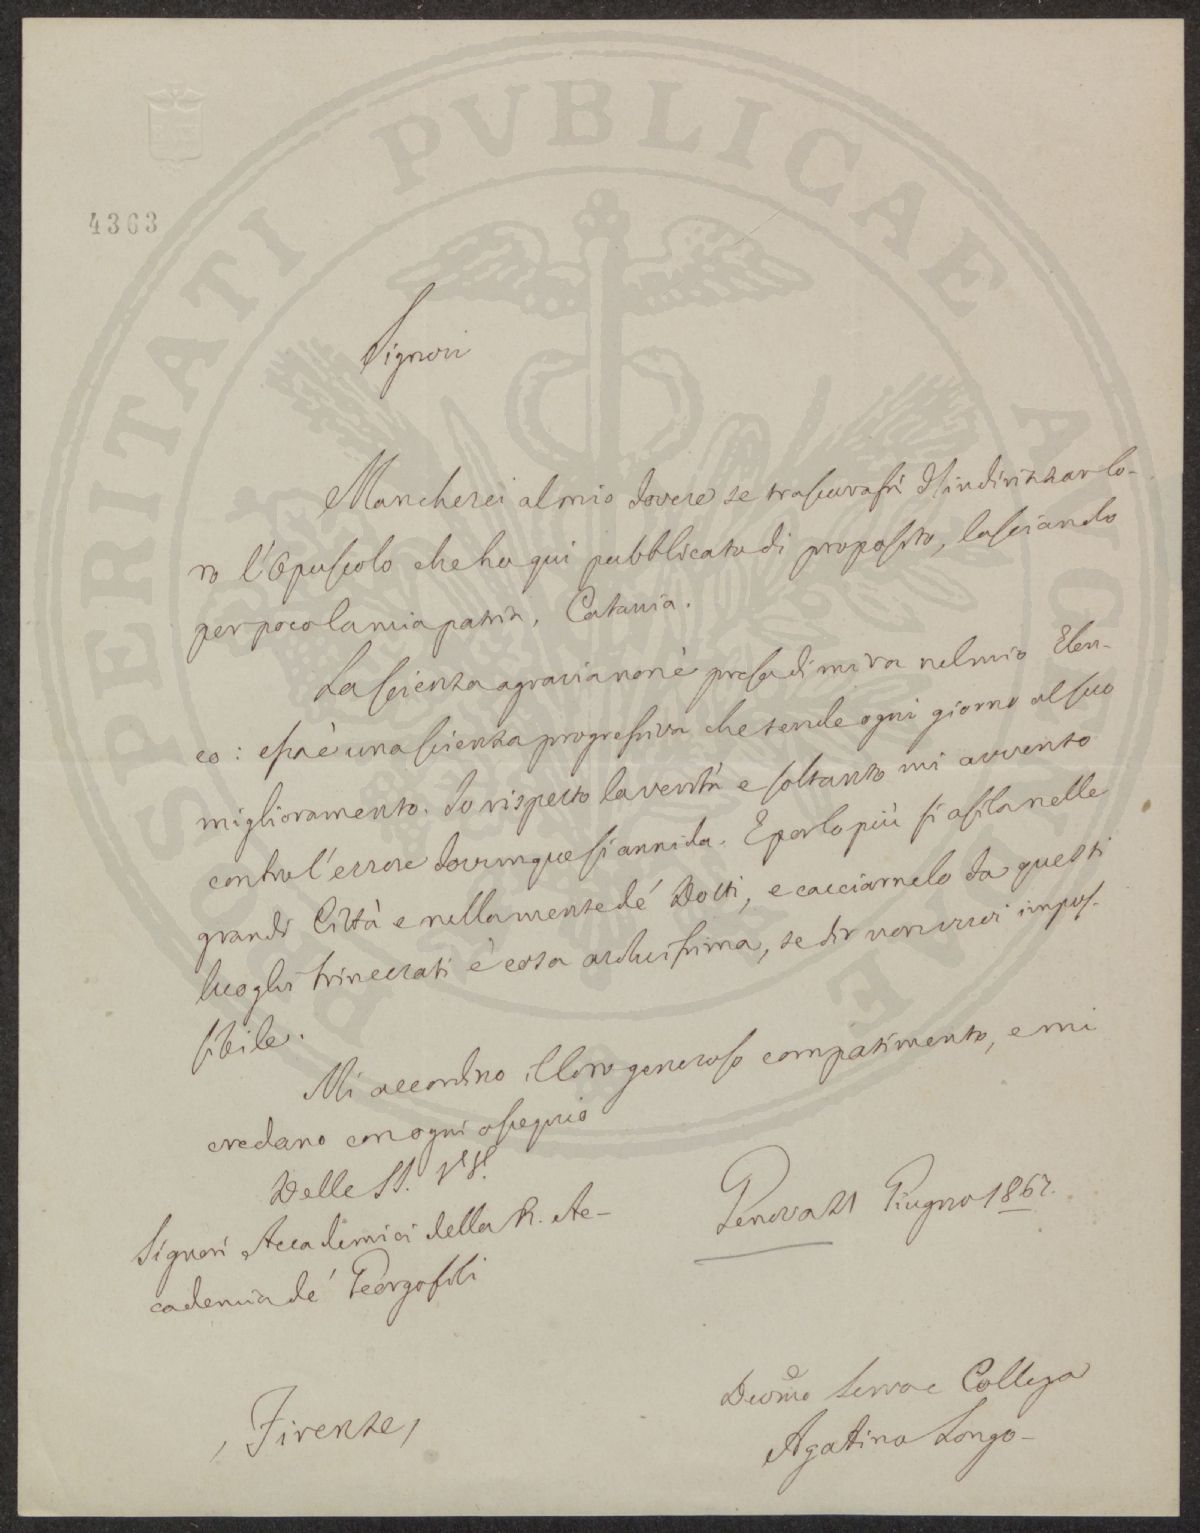 PROSPERITATI PUBLICAE AUGENDAE
4363
Signori
Mancherei al mio dovere se trascurassi d'indirizzar lo-
ro l'Opuscolo che ho qui pubblicato di proposito, lasciando
per poco la mia patria, Catania.
La scienza agraria non è presa di mira nel mio Elen-
co: essa è una scienza progressiva che tende ogni giorno al suo
miglioramento. Io rispetto la verità e soltanto mi avvento
contro l'errore dovunque si annida. E per lo più si asila nelle
grandi Città e nella mente de' Dotti, e cacciarnelo da questi
luoghi trincerati è cosa arduissima, se dir non vuoi impos-
sibile.
Mi accordino il loro generoso compatimento, e mi
credano con ogni ossequio
Delle SS. VV.
Signori Accademici della R. Ac-
cademia de' Georgofili
Genova 21 Giugno 1867.
Firenze
Devmo Servo e Collega
Agatino Longo